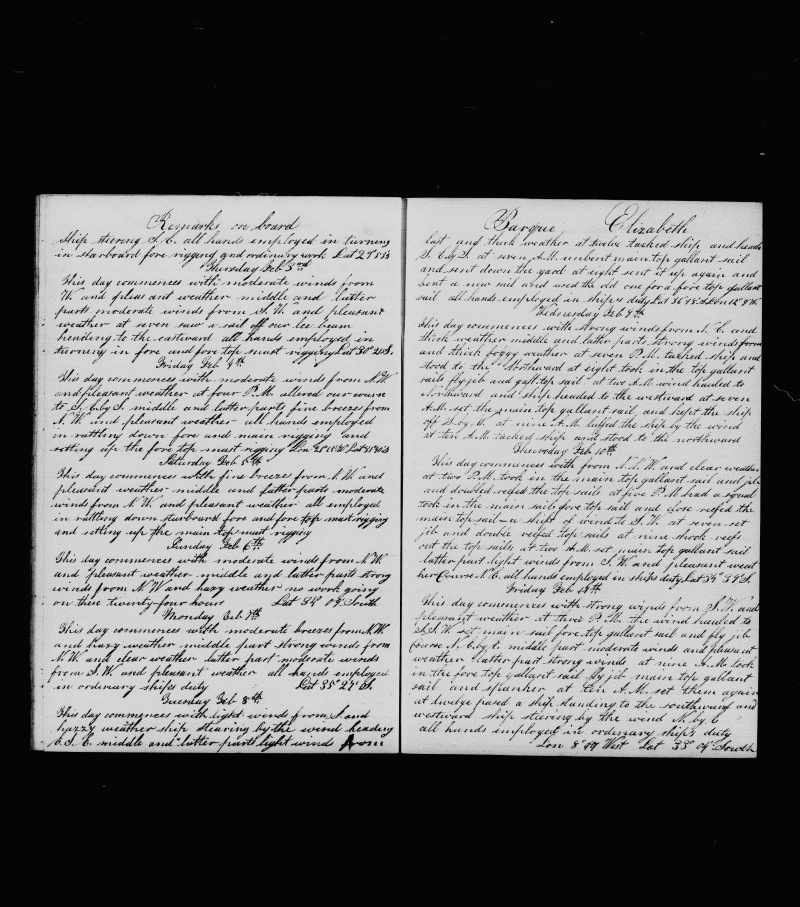 Remarks on board
Ship steering S. E. all hands employed in turning
in starboard fore rigging and ordinary work Lat 29° S
Thursday Feb 3rd
This day commences with moderate winds from
W. and pleasant weather middle and latter
parts moderate winds from S. W. and pleasant
weather at seven saw a sail off our lee beam
heading to the eastward all hands employed in
turning in fore and fore top mast rigging Lat 30° S.
Friday Feb 4th
This day commences with moderate winds from N.W
and pleasant weather at four P.M. altered our course
to S.E. by S. middle and latter parts fine breezes from
N. W. and pleasant weather all hands employed
in rattling down fore and main rigging and
setting up the fore top mast rigging Lon
Saturday Feb 5th
This day commences with fine breezes from N. W and
pleasant weather middle and latter parts moderate
winds from N. W. and pleasant weather all employed
in rattling down starboard fore and fore top mast rigging
and setting up the main top mast rigging
Sunday Feb 6th
This day commences with moderate winds from N.W.
and pleasant weather middle and latter parts strong
winds from N.W and hazy weather no work going
on these twenty-four hours Lat 09' South
Monday Feb 7th
This day commences with moderate breezes from N.W.
and hazy weather middle part strong winds from
N.W. and clear weather latter part moderate winds
from S.W. and pleasant weather all hands employed
in ordinary ships duty Lat 35° 27' S.
Tuesday Feb 8th
This day commences with light winds from S and
hazzy weather ship stearing by the wind heading
E.S.E. middle and latter parts light winds from
Barque Elizabeth
East and thick weather at twelve tacked ship and heads
S. E by S. at seven A.M. unbent main top gallant sail
and sent down the yard at eight sent it up again and
bent a new sail and used the old one for a fore top gallant
sail all hands employed in ship's duty Lat 36° 18' S. Lon 12° 9' W.
Wednesday Feb 9th
This day commences with strong winds from N. E. and
thick weather middle and latter parts strong winds from
and thick foggy weather at seven P.M. tacked ship and
stood to the Northward at eight took in the top gallant
sails fly jib and gaff top sail at two A.M. wind hauled to
Northward and ship headed to the westward at seven
A.M. set the main top gallant sail and kept the ship
off at nine A.M. luffed the ship by the wind
at ten A.M. tacked ship and stood to the northward
Thursday Feb 10th
This day commences with from N.N.W. and clear weather
at two P.M. took in the main top gallant sail and jib
and doubled reefed the top sails at five P.M. had a squal
took in the main sail fore top sail and close reefed the
main top sail - a shift of wind to S.W. at seven set
jib and double reefed top sails at nine shook reefs
out the top sails at two A.M. set main top gallant sail
latter part light winds from S.W. and pleasant weat
her Course N.E. all hands employed in ships duty Lat 34° 39' S.
Friday Feb 11th
This day commences with strong winds from S.W. and
pleasant weather at three P.M. the wind hauled to
S.S.W. set main sail fore top gallant sail and fly jib
course N. E. by E. middle part moderate winds and pleasant
weather latter part strong winds at nine A.M. took
in the fore top gallant sail fly jib main top gallant
sail and spanker at ten A.M. set them again
at twelve pased a ship standing to the southward and
westward ship steering by the wind N. by E
all hands employed in ordinary ship's duty
Lon 8° 47' West Lat 33° 04' South